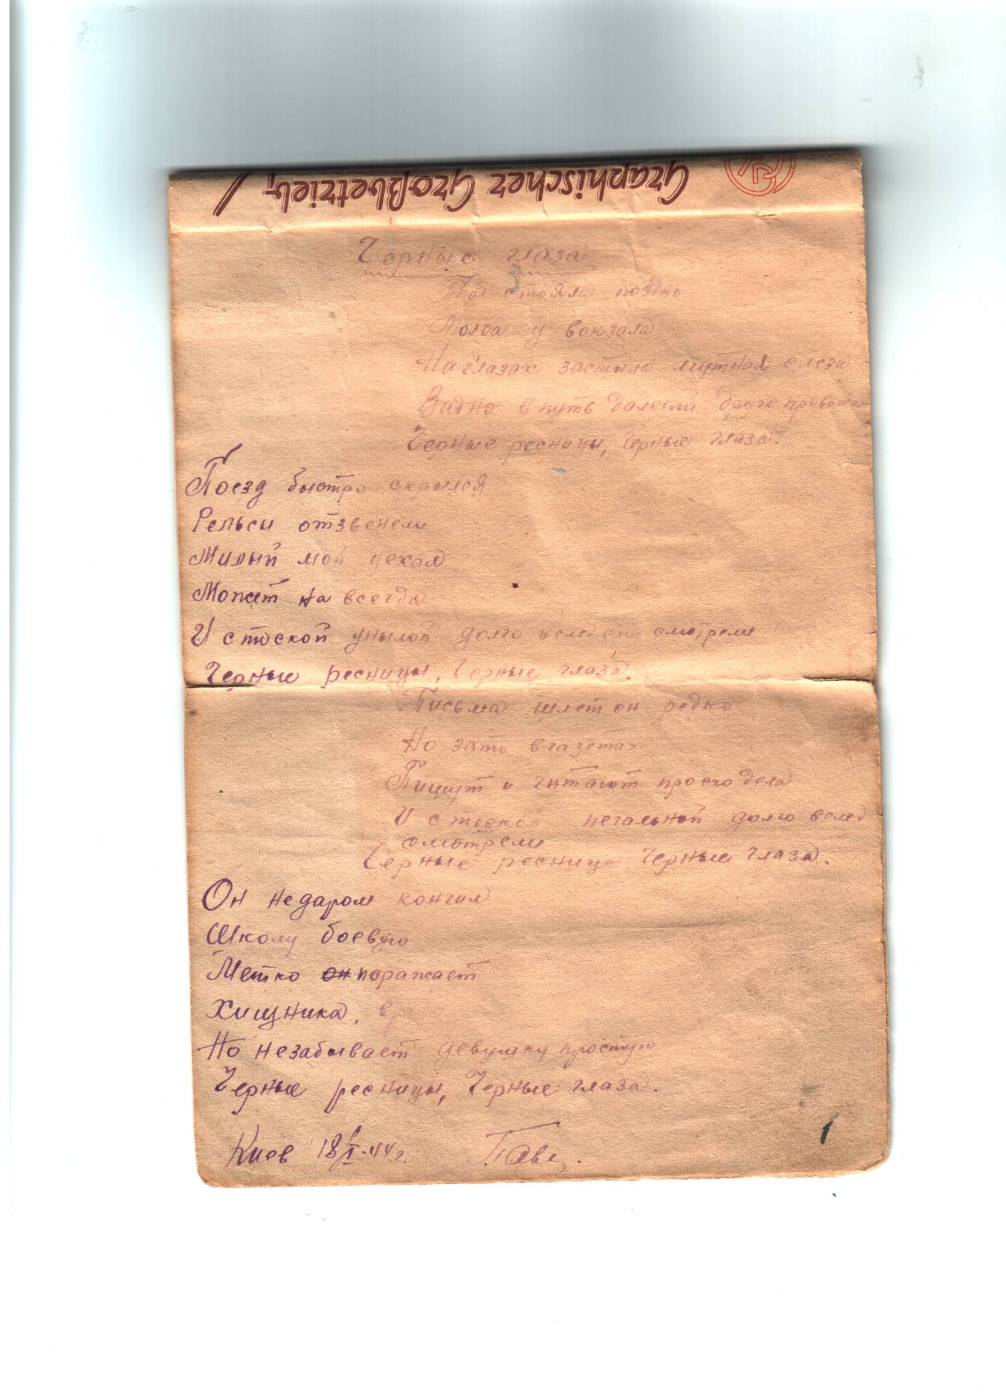 Graphischer Großbetrieb,
Черные глаза
Ты стояла поздно
Молча у вокзала
На глазах застыла мутная слеза
Видно в путь далекий друга провожа
Черные ресницы, черные глаза.
Поезд быстро скрылся
Рельси отзвенели
Милый мой уехал
Может на всегда
И с тоской унылой долго вслед ему смотрели
Черные ресницы, Черные глаза.
Письма шлет он редко
Но зато в газетах
Пишут и читают про его дела
И с тоской печальной долго вслед
смотрели
Черные ресницы Черные глаза.
Он не даром кончил
Школу боевую
Метко он поражает
Хищника,
Но незабывает девушку простую
Черные ресницы, Черные глаза.
Киев 18/I-44 г.
1